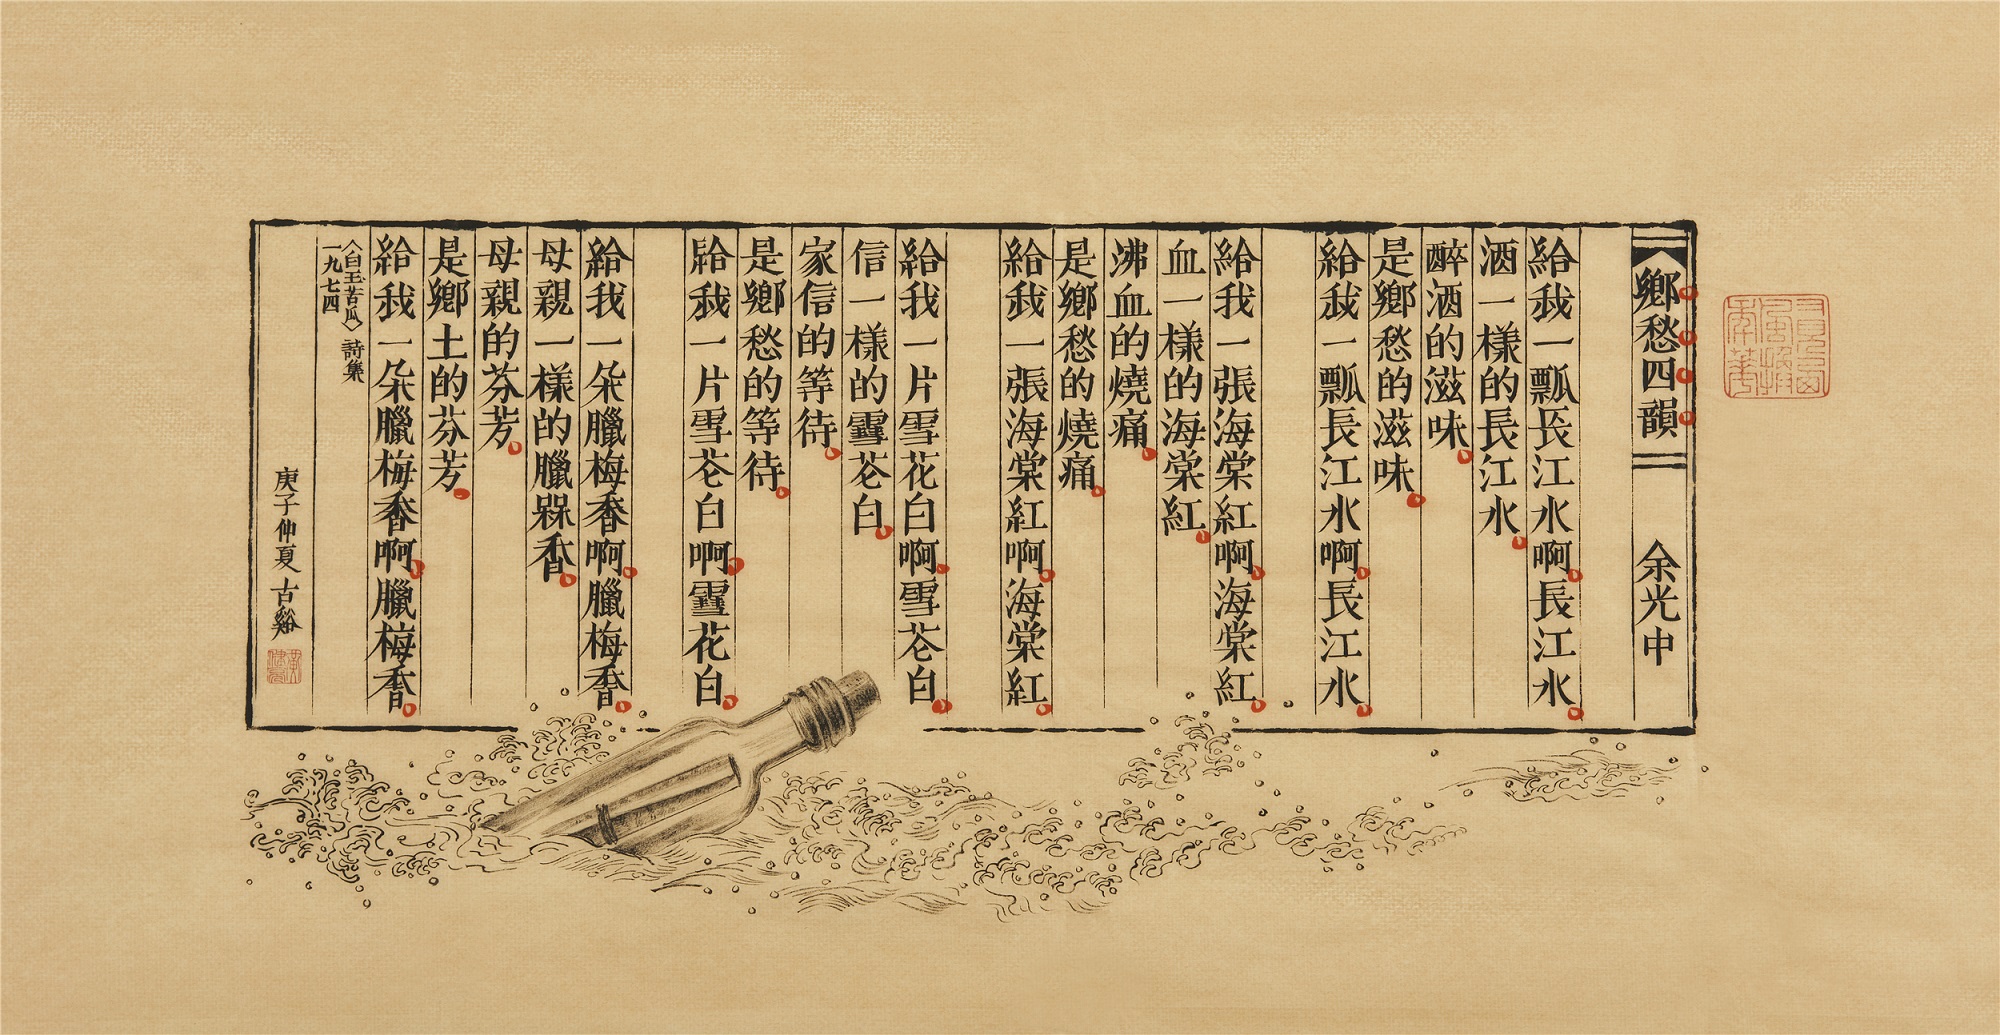 鄉愁四韻 余光中
給我一瓢長江水啊長江水
酒一樣的長江水
醉酒的滋味
是鄉愁的滋味
給我一瓢長江水啊長江水
給我一張海棠紅啊海棠紅
血一樣的海棠紅
沸血的燒痛
是鄉愁的燒痛
給我一張海棠紅啊海棠紅
給我一片雪花白啊雪花白
信一樣的雪花白
家信的等待
是鄉愁的等待
給我一片雪花白啊雪花白
給我一朵臘梅香啊臘梅香
母親一樣的臘梅香
母親的芬芳
是鄉土的芬芳
給我一朵臘梅香啊臘梅香
《白玉苦瓜》詩集
一九七四
庚子仲夏 古谿